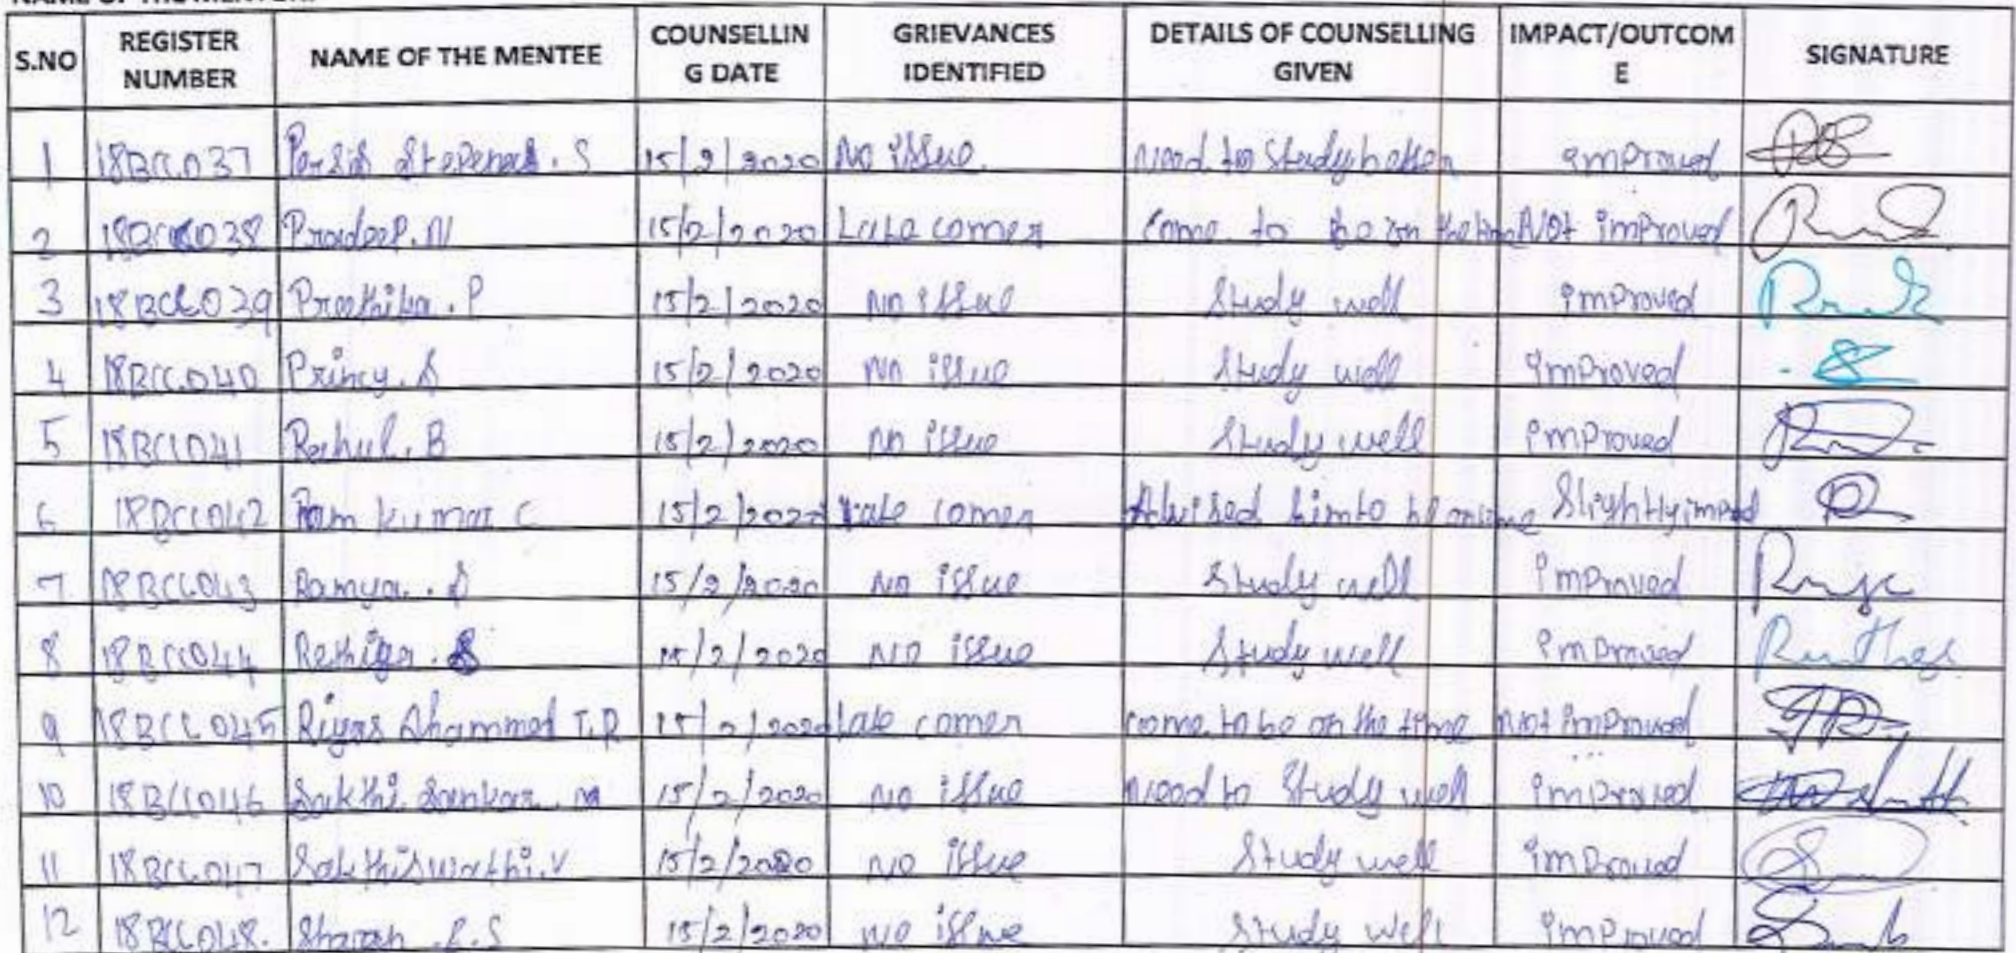 S.NO REGISTER NUMBER NAME OF THE MENTEE COUNSELLIN G DATE GRIEVANCES IDENTIFIED DETAILS OF COUNSELLING GIVEN IMPACT/OUTCOM E SIGNATURE
1 18BCC037 Persis S 15/2/2020 No issue. need to study better improved
2 18BCC038 Pradeep. N 15/2/2020 Late comer come to be on the time Not improved
3 18BCC039 Preethika. P 15/2/2020 no issue study well improved
4 18BCC040 Princy. S 15/2/2020 no issue study well improved
5 18BCC041 Rahul. B 15/2/2020 no issue study well improved
6 18BCC042 Ram kumar C 15/2/2020 late comer Advised him to be ontime Slightly
7 18BCC043 Ramya. S 15/2/2020 no issue study well improved
8 18BCC044 Rethiga. S 15/2/2020 no issue study well improved
9 18BCC045 Riyas Ahammed T.R 15/2/2020 late comer come to be on the time not improved
10 18BCC046 Sakthi Sankar. M 15/2/2020 no issue need to study well improved
11 18BCC047 Sakthiswathi. V 15/2/2020 no issue study well improved
12 18BCC048. Sharan .R.S 15/2/2020 no issue study well improved